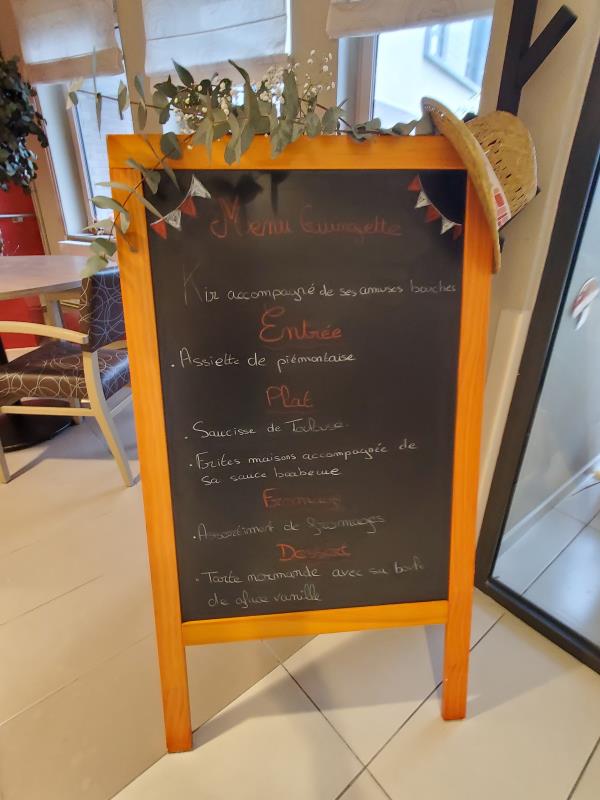 Menu Guinguette
Kir accompagné de ses amuses bouches
Entrée
. Assiette de piémontaise
Plat
. Saucisse de Toulouse.
. Frites maisons accompagnée de
sa sauce barbecue
Fromage
. Assortiment de fromages
Dessert
. Tarte normande avec sa boule
de glace vanille